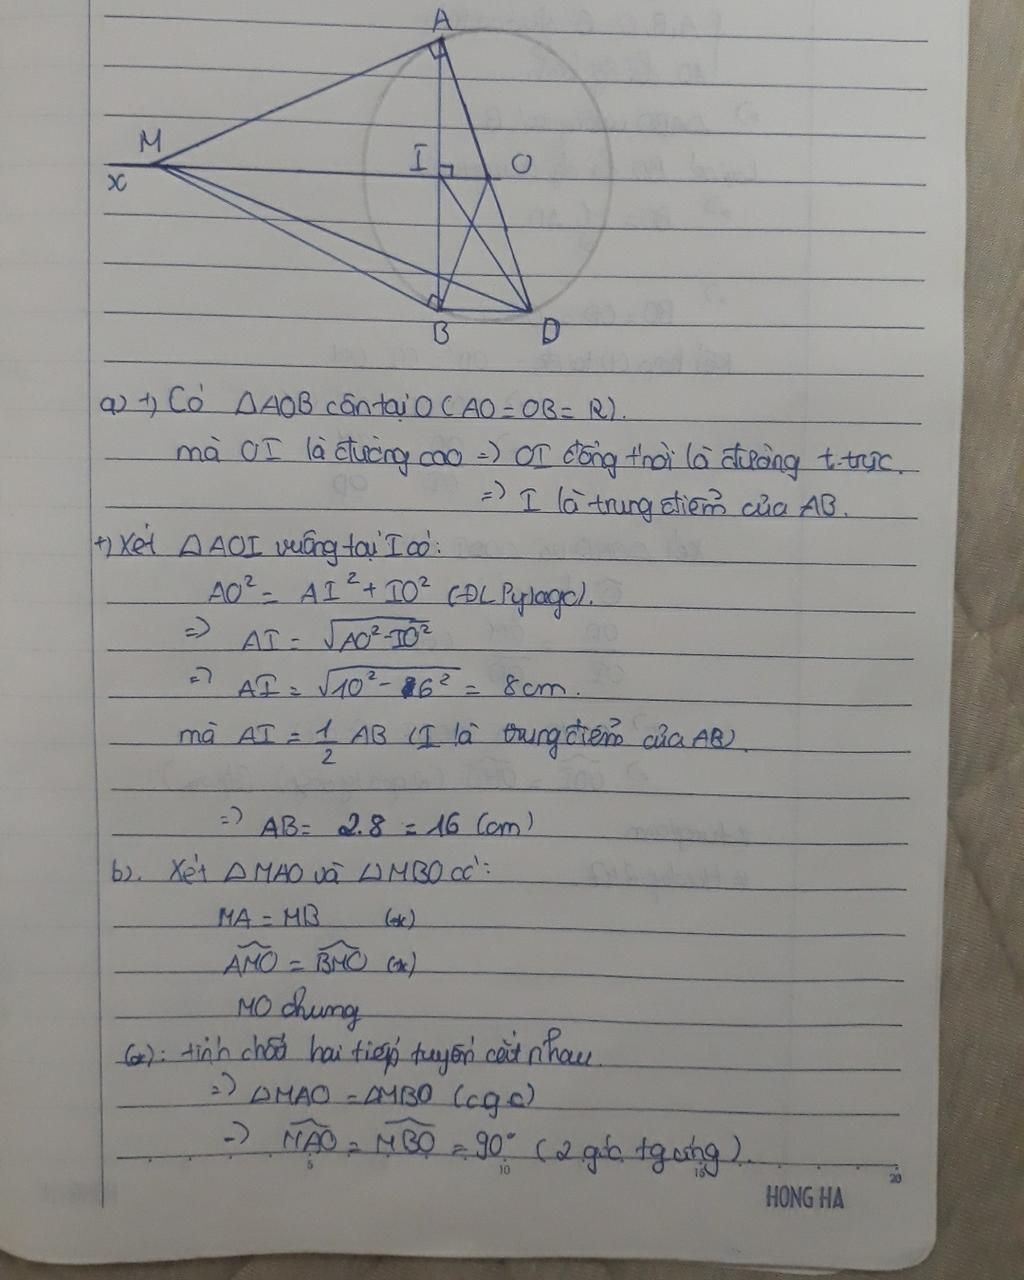 A
M
I
O
x
B
D
a) +) Có ΔAOB cân tại O (AO = OB = R).
mà OI là đường cao => OI đồng thời là đường t.trực.
=> I là trung điểm của AB.
+) Xét ΔAOI vuông tại I có:
AO² = AI² + IO² (ĐL Pytago).
=> AI = √AO² - IO²
=> AI = √10² - 6² = 8cm.
mà AI = 1/2 AB (I là trung điểm của AB).
=> AB = 2.8 = 16 (cm)
b). Xét ΔMAO và ΔMBO có:
MA = MB (*)
AMO = BMO (*)
MO chung
(*): tính chất hai tiếp tuyến cắt nhau.
=> ΔMAO = ΔMBO (cgc)
=> MAO = MBO = 90° (2 góc tg ứng).
5 10 15 20
HONG HA